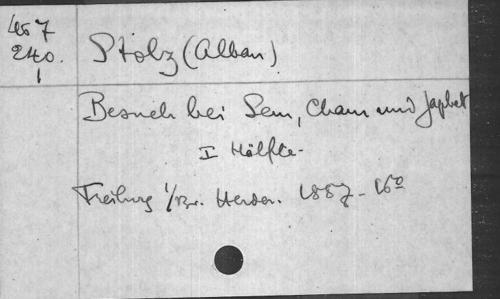 457
240.
1
Stolz (Alban)
Besuch bei Sem, Cham und Japhet
I Hälfte -
Freiburg i/Br. Herder. 1857 - 16°